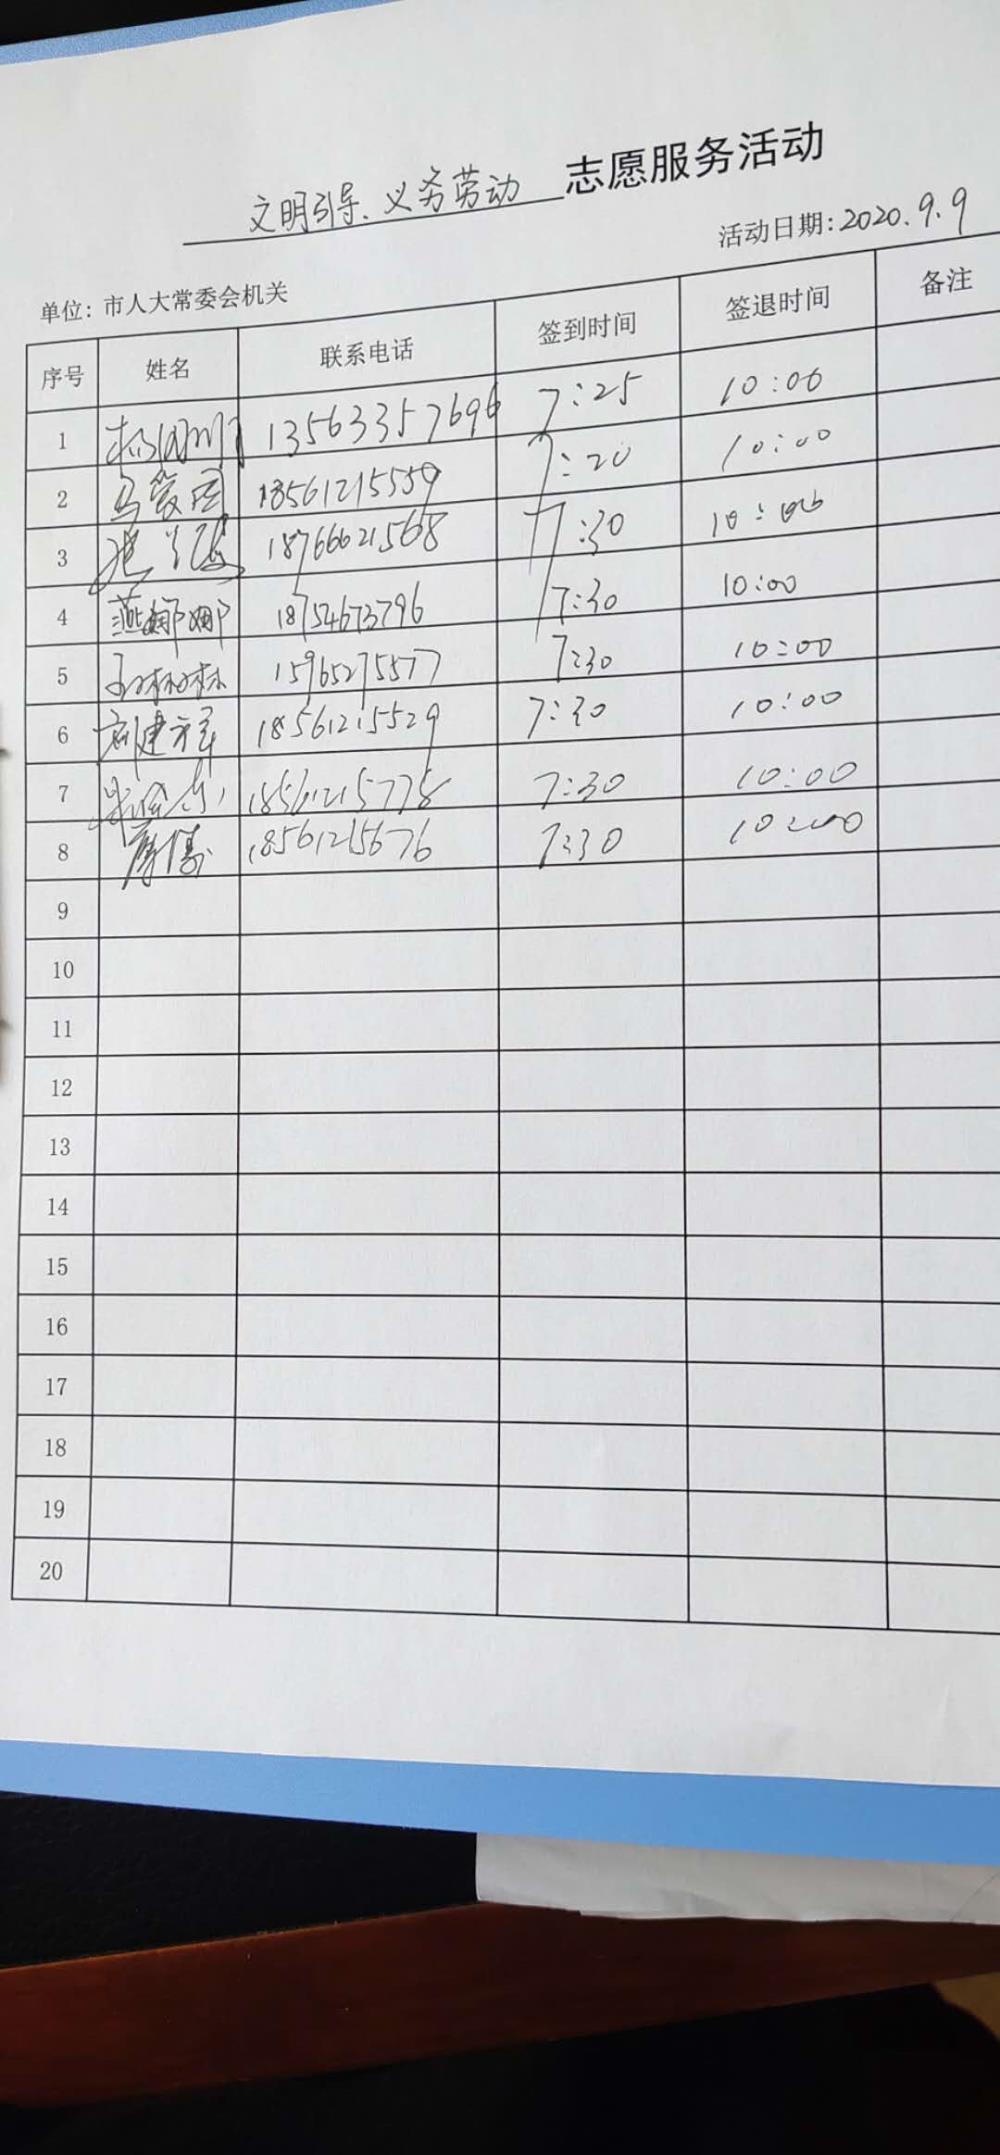 文明引导、义务劳动 志愿服务活动
活动日期:2020.9.9
单位:市人大常委会机关
序号 姓名 联系电话 签到时间 签退时间 备注
1 13563357696 7:25 10:00
2 18561215559 7:20 10:00
3 18766621568 7:30 10:00
4 燕娜娜 18754673796 7:30 10:00
5 15965275577 7:30 10:00
6 刘建祥 18561215529 7:30 10:00
7 18561215778 7:30 10:00
8 18561215676 7:30 10:00
9
10
11
12
13
14
15
16
17
18
19
20